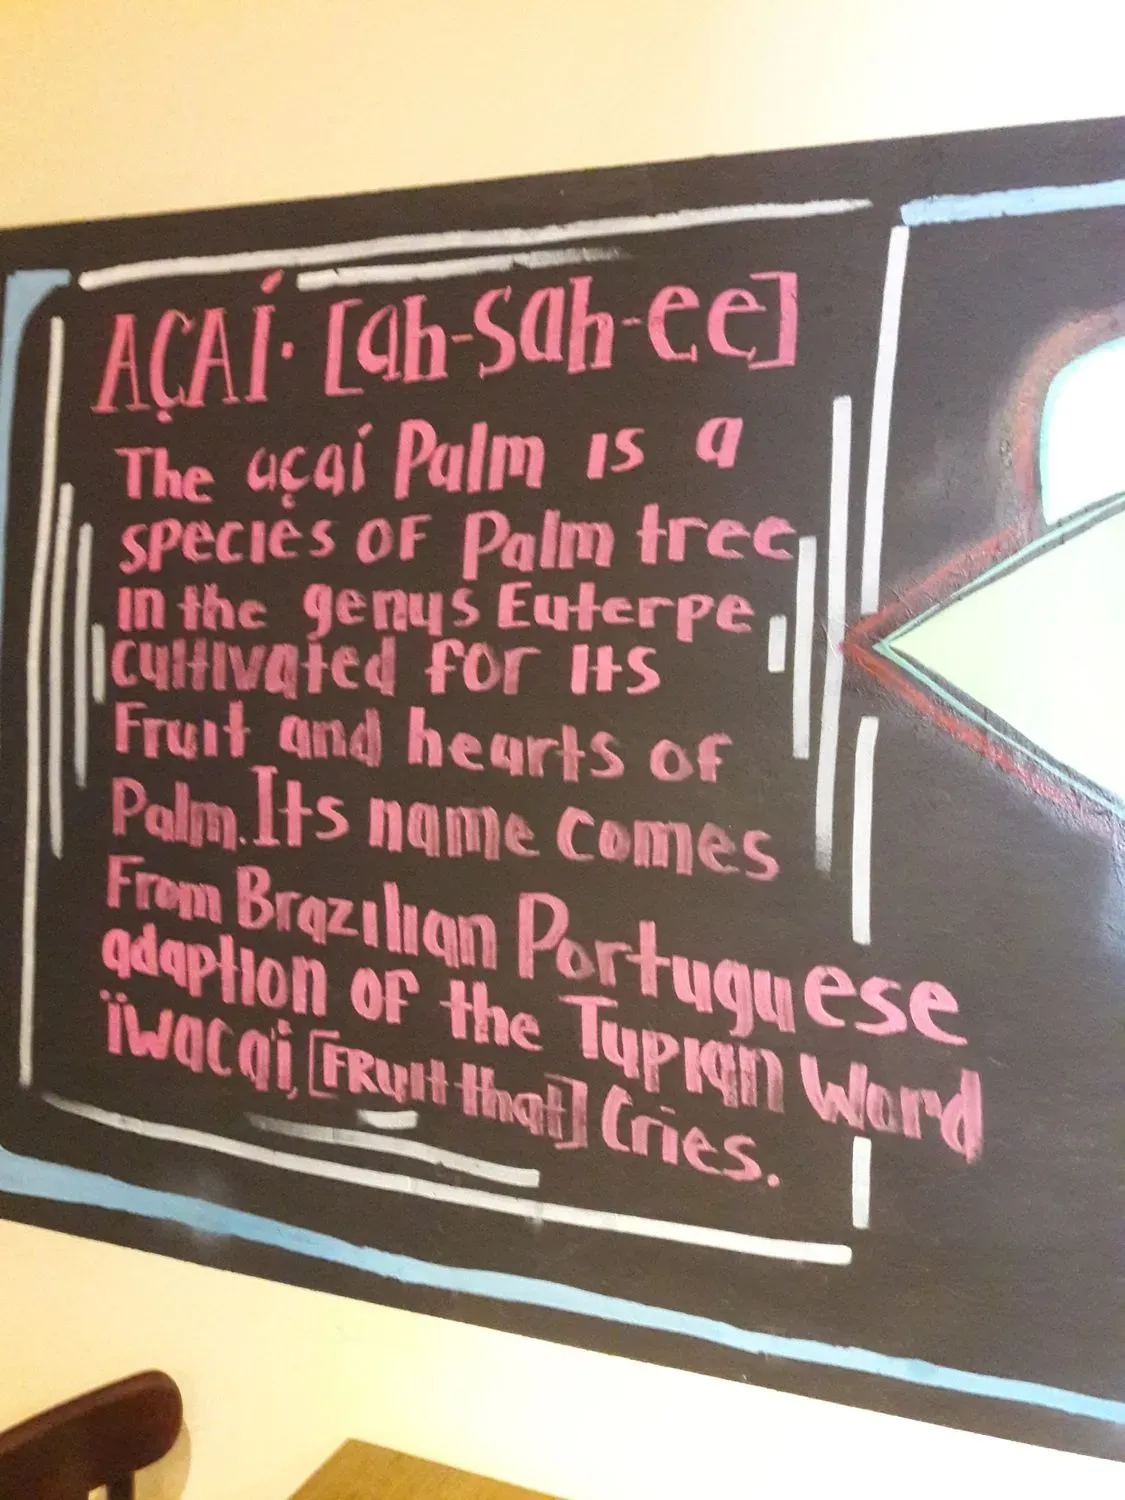 AÇAÍ· [ah-sah-ee]
The açaí Palm is a
species of Palm tree
in the genus Euterpe
cultivated for its
Fruit and hearts of
Palm. Its name comes
From Brazilian Portuguese
adaption of the Tupian Word
ïwacaí, [FRuit that] Cries.